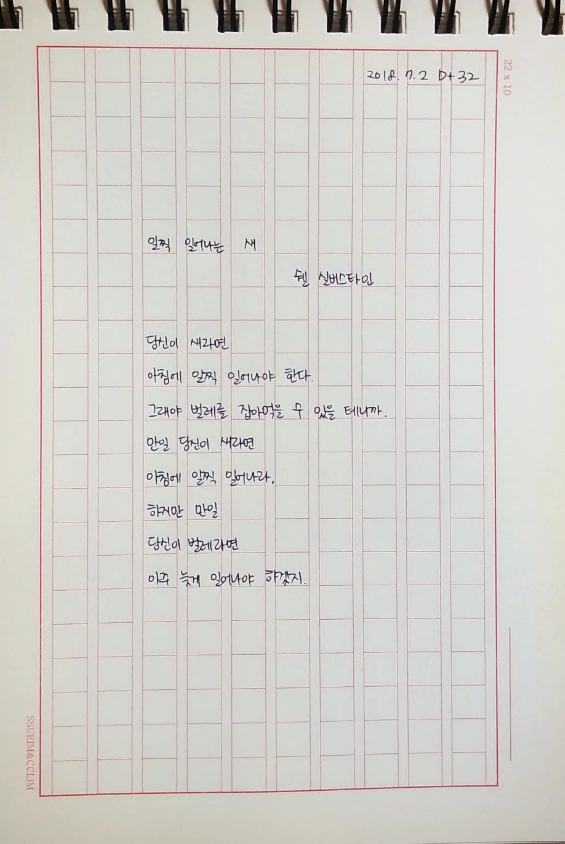 2018. 7. 2 D+32
22 x 10
일찍 일어나는 새
쉘 실버스타인
당신이 새라면
아침에 일찍 일어나야 한다.
그래야 벌레를 잡아먹을 수 있을 테니까.
만일 당신이 새라면
아침에 일찍 일어나라.
하지만 만일
당신이 벌레라면
아주 늦게 일어나야 하겠지.
SSUEIM&CCLIM